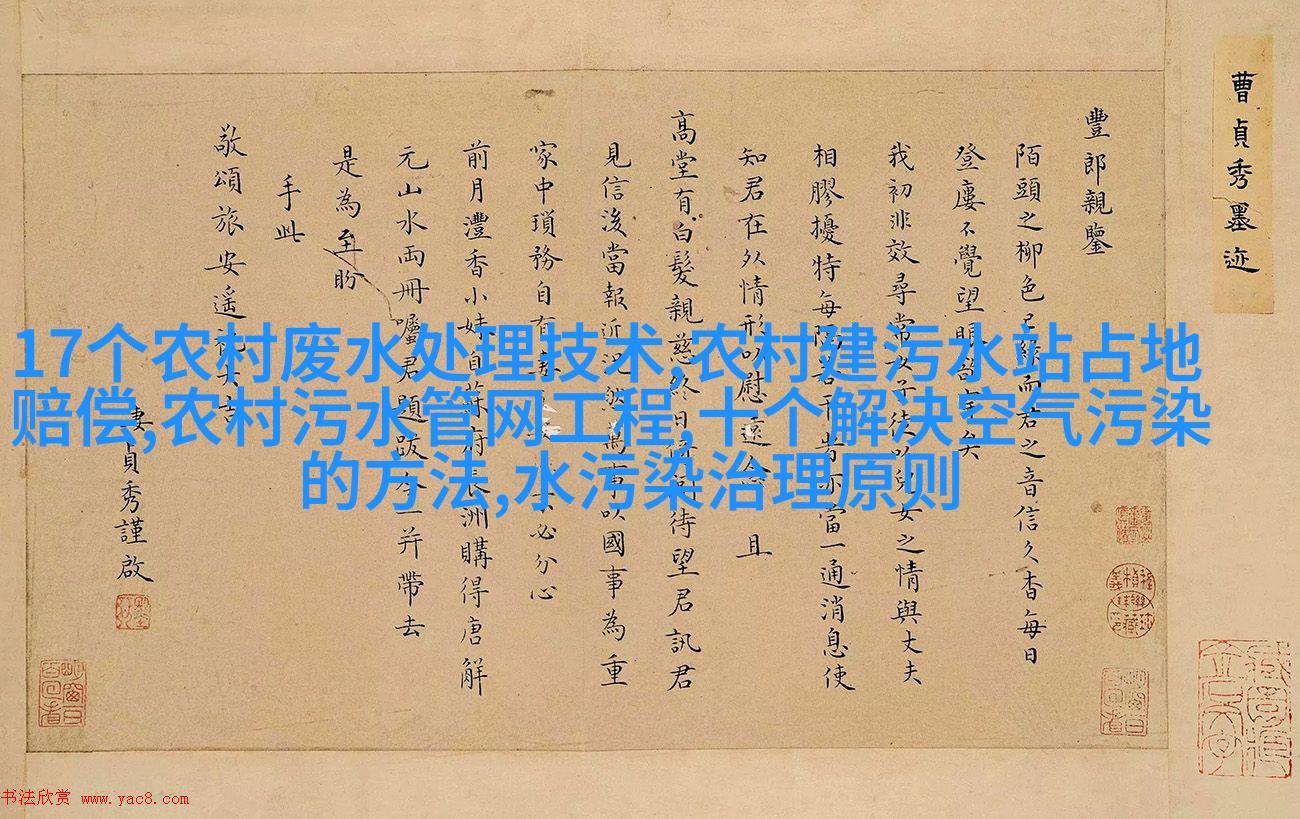 曹貞秀墨迹
豐郎親鑒
陌頭之柳色而君之音信久杳每日
登廔不覺望眼欲矣
我初非效尋常女子徒以兒女之情與丈夫
相膠擾特每當一通消息使
知君在外情形以慰遠且
高堂有白髮親慈終日待望君訊君
見信後當報近況然萬事以國事為重
家中瑣務自有必分心
前月灃香小妹自蘇府長洲購得唐解
元山水兩冊囑君題跋今一并帶去
是為至盼
手此
敬頌旅安遥祝
妻貞秀謹啟
17个农村废水处理技术,农村建污水站占地
赔偿,农村污水管网工程,十个解决空气污染
的方法,水污染治理原则
书法欣赏 www.yac8.com